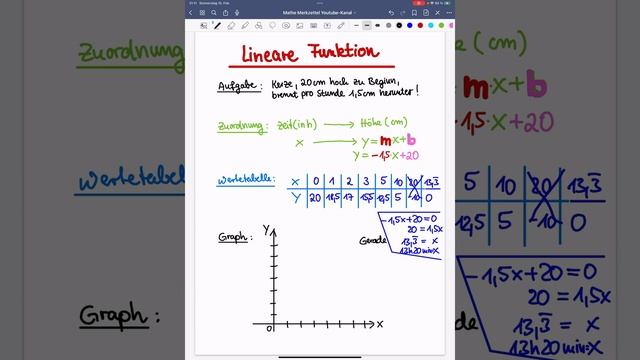 Mathe Merkzettel YouTube-Kanal
Lineare Funktion
Aufgabe: Kerze, 20cm hoch zu Beginn,
brennt pro Stunde 1,5cm herunter!
Zuordnung: Zeit(in h) → Höhe (cm)
x → y = mx+b
y = -1,5x+20
Wertetabelle: x 0 1 2 3 5 10 20 13,3̅
y 20 18,5 17 15,5 12,5 5 -10 0
-1,5x+20=0
20 = 1,5x
13,3̅ = x
13h20min=x
Graph: Gerade
y
0 x
Zuordnung
Höhe (cm)
m·x+b
-1,5·x+20
Wertetabelle
5 10 20 13,3̅
12,5 5 -10 0
-1,5x+20=0
20 = 1,5x
13,3̅ = x
13h20min=x
Graph: